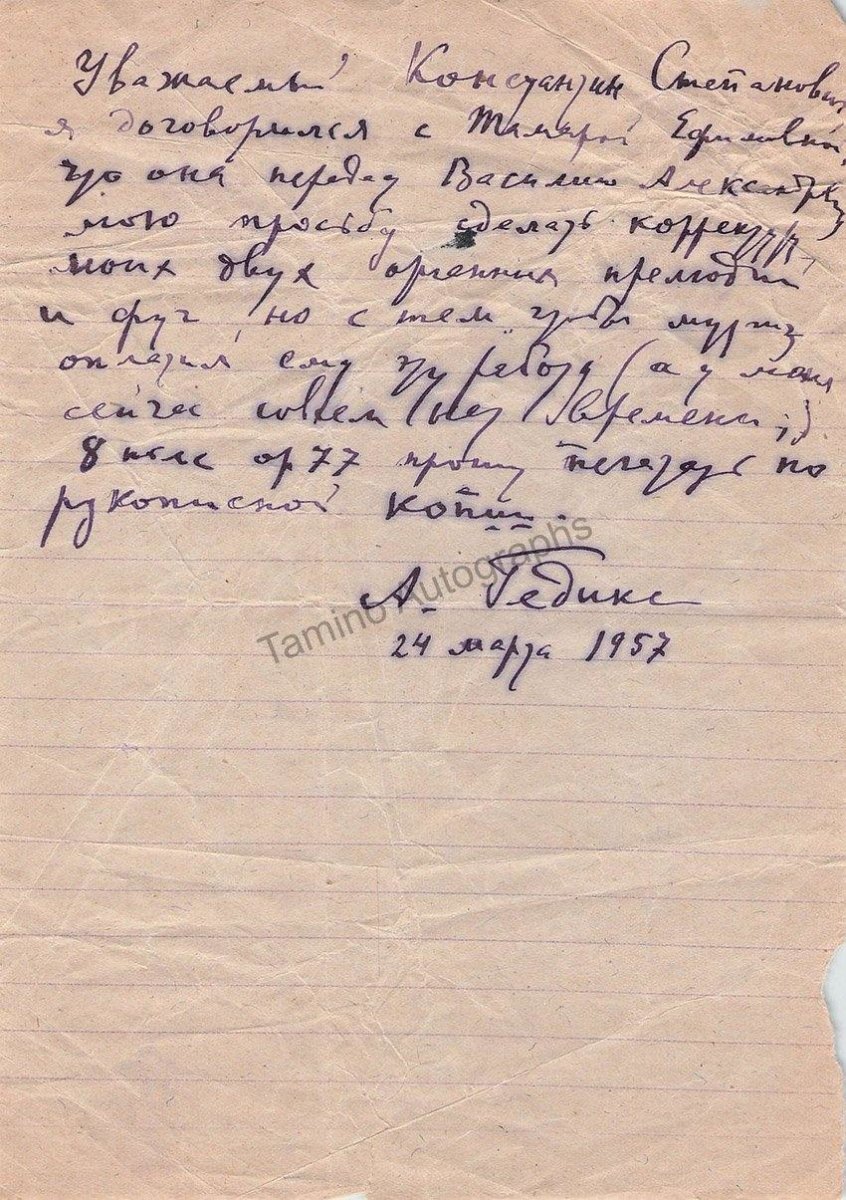 Уважаемый Константин Степанович
я договорился с Тамарой Ефимовной,
что она передаст Василию Александр
мою просьбу сделать корректуру
моих двух органных прелюдий
и фуг, но с тем, чтобы музгиз
оплатил ему эту работу (а у меня
сейчас совсем нет времени;).
8 пьес ор 77 прошу печатать по
рукописной копии.
А. Гедике
24 марта 1957
Tamino Autographs